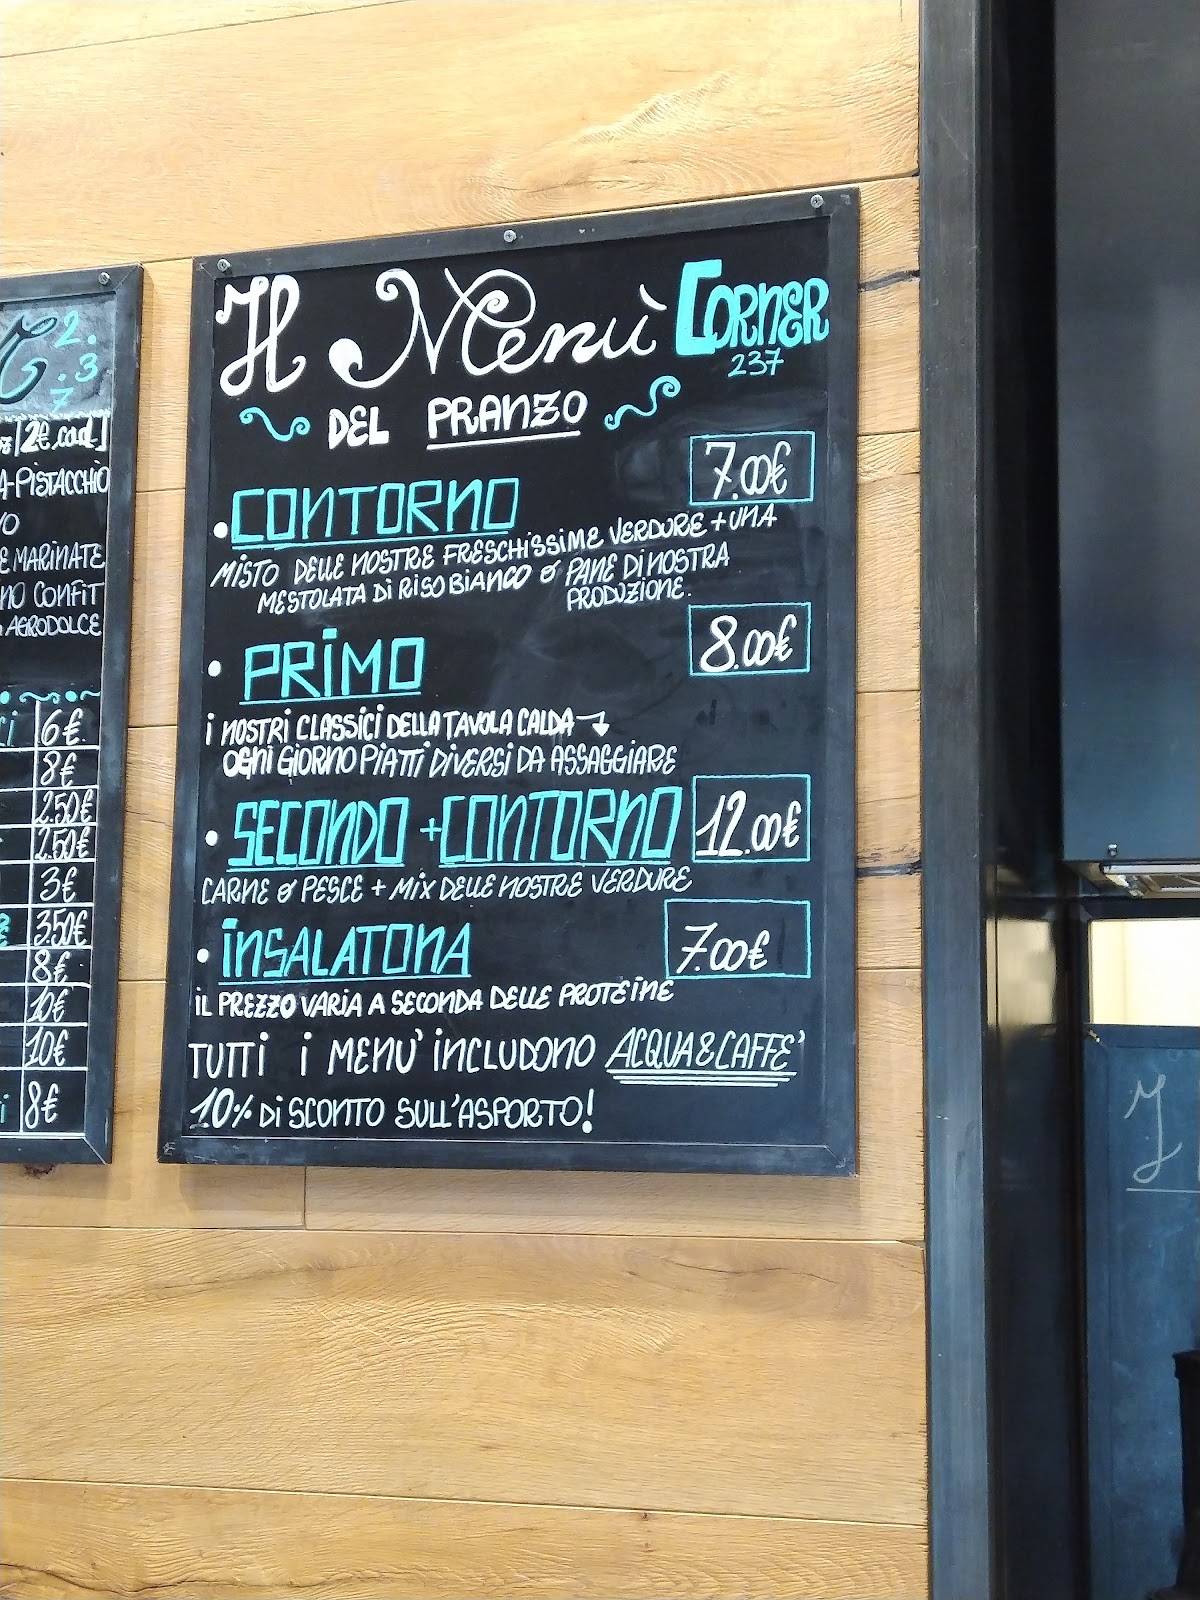 2.
3
.7
2€.cad]
A-PISTACCHIO
E MARINATE
NO CONFIT
AGRODOLCE
6€.
8€
2.50€
2.50€
3€
3.50€
8€
10€
10€
8€
Il Menù CORNER
237
DEL PRANZO
7.00€
• CONTORNO
MISTO DELLE NOSTRE FRESCHISSIME VERDURE + UNA
MESTOLATA DI RISO BIANCO O PANE DI NOSTRA
PRODUZIONE.
8.00€
• PRIMO
I NOSTRI CLASSICI DELLA TAVOLA CALDA →
OGNI GIORNO PIATTI DIVERSI DA ASSAGGIARE
• SECONDO + CONTORNO 12.00€
CARNE O PESCE + MIX DELLE NOSTRE VERDURE
• INSALATONA 7.00€
IL PREZZO VARIA A SECONDA DELLE PROTEINE
TUTTI I MENU' INCLUDONO ACQUA & CAFFE'
10% DI SCONTO SULL'ASPORTO!